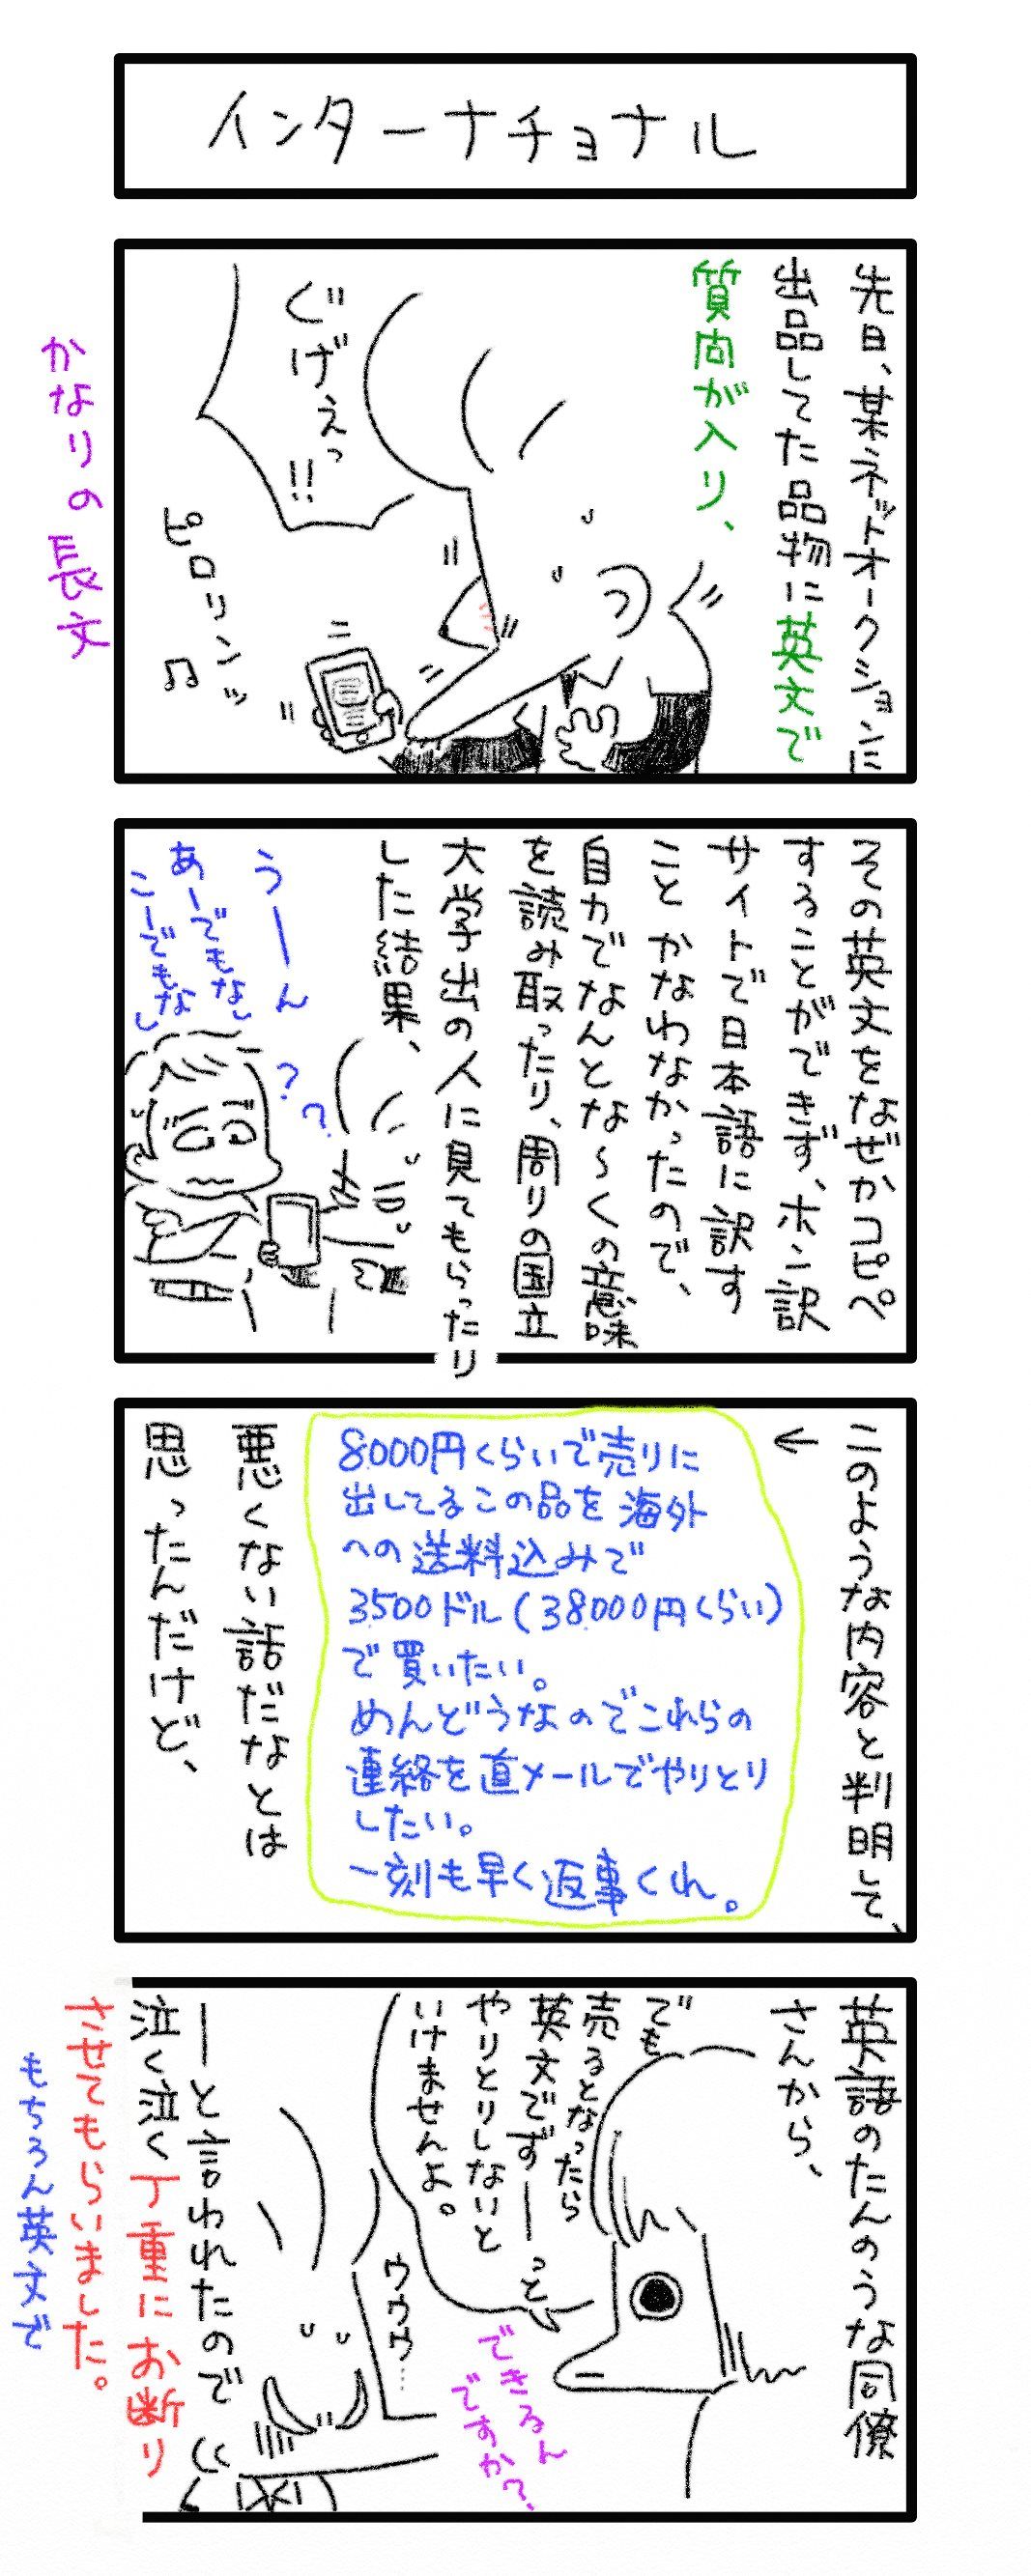 インターナチョナル
先日、某ネットオークションに
出品してた品物に英文で
質問が入り、
ぐげぇっ!!
ピロリンッ♫
かなりの長文
その英文をなぜかコピペ
することができず、ホン訳
サイトで日本語に訳す
ことかなわなかったので、
自力でなんとな〜くの意味
を読み取ったり、周りの国立
大学出の人に見てもらったり
した結果、
うーーん
あーでもなし
こーでもなし
??
このような内容と判明して、
←
8000円くらいで売りに
出してるこの品を海外
への送料込みで
3500ドル(38000円くらい)
で買いたい。
めんどうなのでこれらの
連絡を直メールでやりとり
したい。
一刻も早く返事くれ。
悪くない話だなとは
思ったんだけど、
英語のたんのうな同僚
さんから、
でも
売るとなったら
英文でずーーっと
やりとりしないと
いけませんよ。
できるん
ですか?
ウウウ…
ーと言われたので
泣く泣く丁重にお断り
させてもらいました。
もちろん英文で